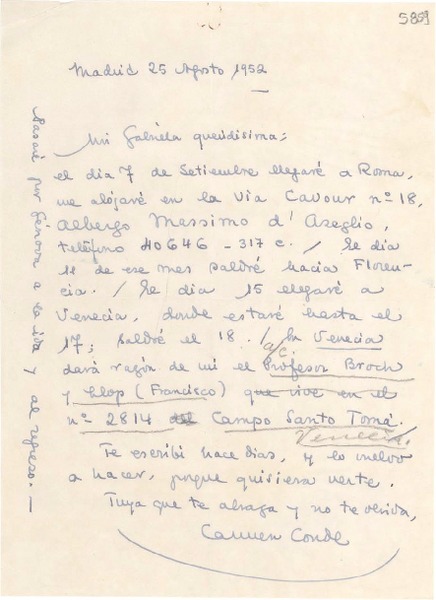 5859
Madrid 25 Agosto 1952
Mi Gabriela queridísima:
el día 7 de Setiembre llegaré a Roma,
me alojaré en la Via Cavour nº 18,
Albergo Massimo d'Azeglio,
teléfono 40646 - 317 c. / El día
11 de ese mes saldré hacia Floren-
cia. / El día 15 llegaré a
Venecia, donde estaré hasta el
17; saldré el 18. / En Venecia
a/c.
dará razón de mi el Profesor Broch
y Llop (Francisco) que vive en el
nº 2814 del Campo Santo Tomá.
Venecia.
Te escribí hace días, y lo vuelvo
a hacer, porque quisiera verte.
Tuya que te abraza y no te olvida,
Carmen Conde
Pasaré por Génova a la ida y al regreso. —